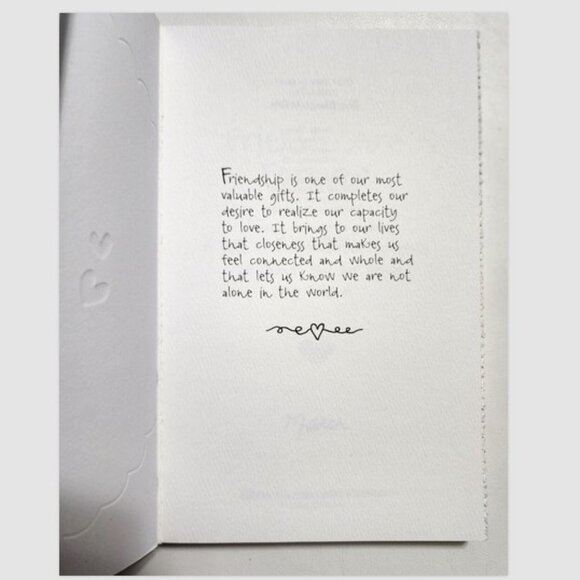 Friendship is one of our most
valuable gifts. It completes our
desire to realize our capacity
to love. It brings to our lives
that closeness that makes us
feel connected and whole and
that lets us know we are not
alone in the world.